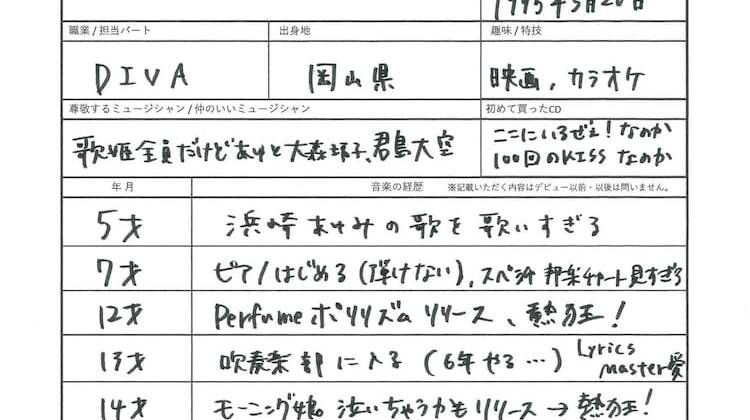 1995年3月20日
職業 / 担当パート
出身地
趣味 / 特技
DIVA
岡山県
映画，カラオケ
尊敬するミュージシャン / 仲のいいミュージシャン
初めて買ったCD
歌姫全員だけどあゆと大森靖子、君島大空
ここにいるぜぇ！なのか
100回のKISS なのか
年 月
音楽の経歴
※記載いただく内容はデビュー以前・以後は問いません。
5才
浜崎あゆみの歌を歌いすぎる
7才
ピアノはじめる（弾けない），スペシャ 邦楽チャート見すぎる
12才
Perfume ポリリズム リリース、熱狂！
13才
吹奏楽部に入る（6年やる…）
Lyrics
Master愛
14才
モーニング娘。泣いちゃうかも リリース→熱狂！